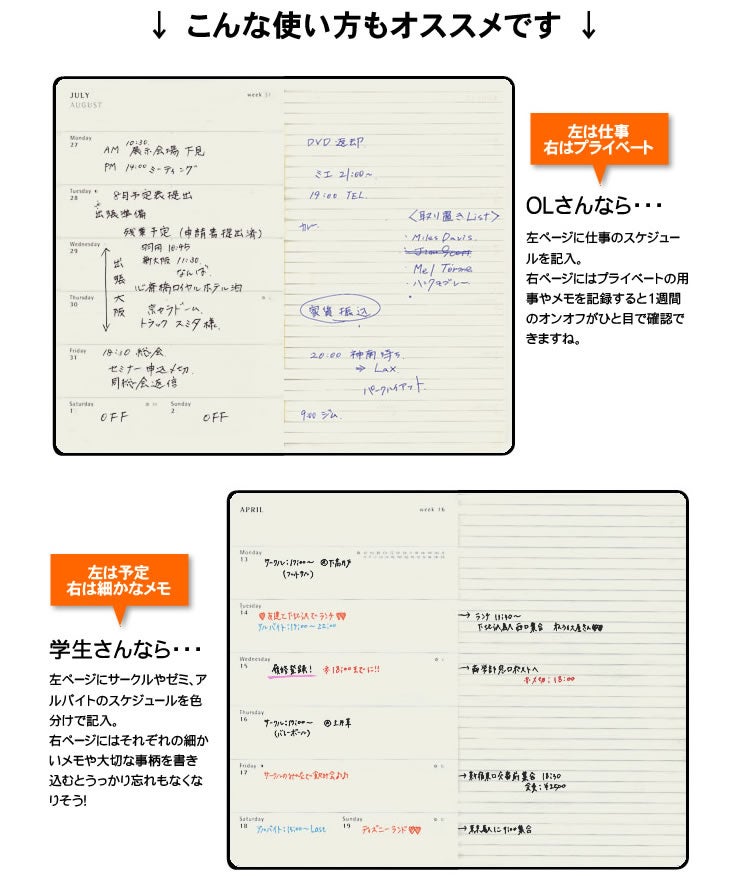 ↓ こんな使い方もオススメです ↓
JULY
AUGUST
week 31
Monday
27
AM 10:30 展示会場下見
PM 14:00 ミーティング
Tuesday
28
8月予定表提出
出張準備
残業予定 (申請書提出済)
Wednesday
29
羽田 10:45
新大阪 11:30
なんば
心斎橋ロイヤルホテル泊
出張大阪
Thursday
30
京セラドーム
トラック スミタ様
Friday
31
18:30 総会
セミナー申込〆切
同総会返信
Saturday
1
OFF
Sunday
2
OFF
DVD 返却
ミエ 21:00~
19:00 TEL
カレー
<取り置きList>
・Miles Davis
・Mel Torme
家賃振込
20:00 神南待ち
⇒ Lax
パークハイアット
9:00 ジム
左は仕事
右はプライベート
OLさんなら・・・
左ページに仕事のスケジュー
ルを記入。
右ページにはプライベートの用
事やメモを記録すると1週間
のオンオフがひと目で確認で
きますね。
左は予定
右は細かなメモ
学生さんなら・・・
左ページにサークルやゼミ、ア
ルバイトのスケジュールを色
分けで記入。
右ページにはそれぞれの細か
いメモや大切な事柄を書き
込むとうっかり忘れもなくな
りそう!
APRIL
week 16
Monday
13
サークル:17:00~ @下高井戸
(フットサル)
Tuesday
14
♡友達と下北沢でランチ♡♡
アルバイト:17:00~22:00
Wednesday
15
履修登録! ※18:00までに!!
Thursday
16
サークル:17:00~ @上井草
(バレーボール)
Friday
17
サークルの
Saturday
18
アルバイト:15:00~Last
Sunday
19
ディズニーランド♡♡
→ランチ 11:30~
下北沢駅西口集合
→商学部窓口ポストへ
※〆切:18:00
→新宿東口交番前集合 18:30
会費:¥2500
→東京駅に9:00集合